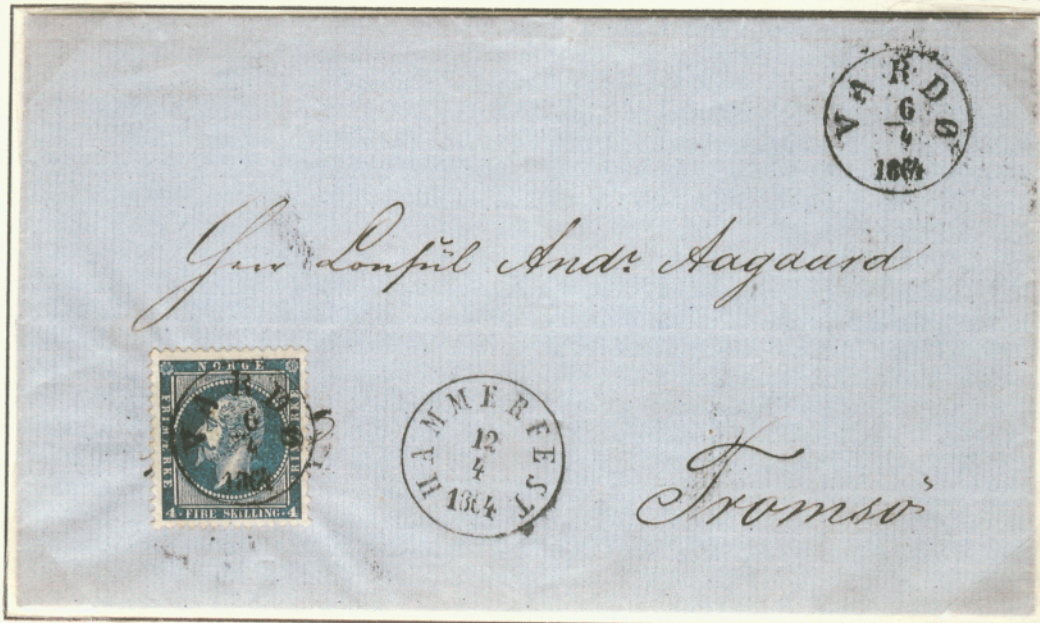 VARDØ
6
4
1864
Herr Consül Andr Aagaard
NORGE
FRIMÆRKE
FRIMÆRKE
4 FIRE SKILLING 4
VARDØ
6
4
1864
HAMMERFEST
12
4
1864
Tromsö